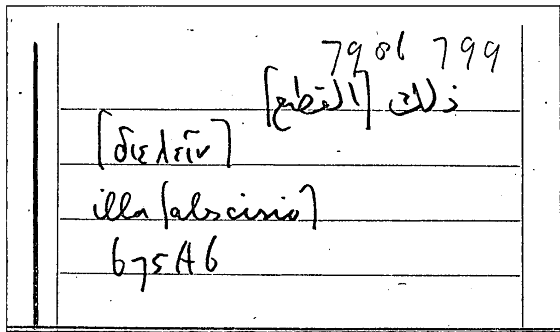 799
ذلك [القطع]
[διελεῖν]
illa [abscisio]
675A6